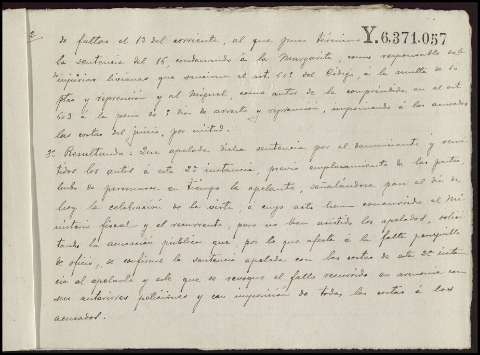 Y.6.371.057
de faltas el 13 del corriente, al que puso término
la sentencia del 16, condenando á la Margarita, como responsable de
injurias livianas que sanciona el art. del Código, á la multa de
ptas y reprension y al Miguel, como autor de la comprendida en el art
603 á la pena de dias de arresto y reprension, imponiendo á los acusados
las costas del juicio, por mitad.
3º Resultando: Que apelada dicha sentencia por el denunciante y remi-
tidos los autos á esta 2ª instancia, previo emplazamiento de las partes
hubo de personarse en tiempo la apelante, señalandose para el dia de
hoy la celebracion de la vista, á cuyo acto han concurrido el Mi-
nisterio fiscal y el recurrente, pero no han asistido los apelados, solici-
tando la acusacion pública que por lo que afecta á la falta perseguible
de oficio, se confirme la sentencia apelada con las costas de esta 2ª instan-
cia al apelante y este que se revoque el fallo recurrido en armonia con
sus anteriores peticiones y con imposicion de todas las costas á los
acusados.